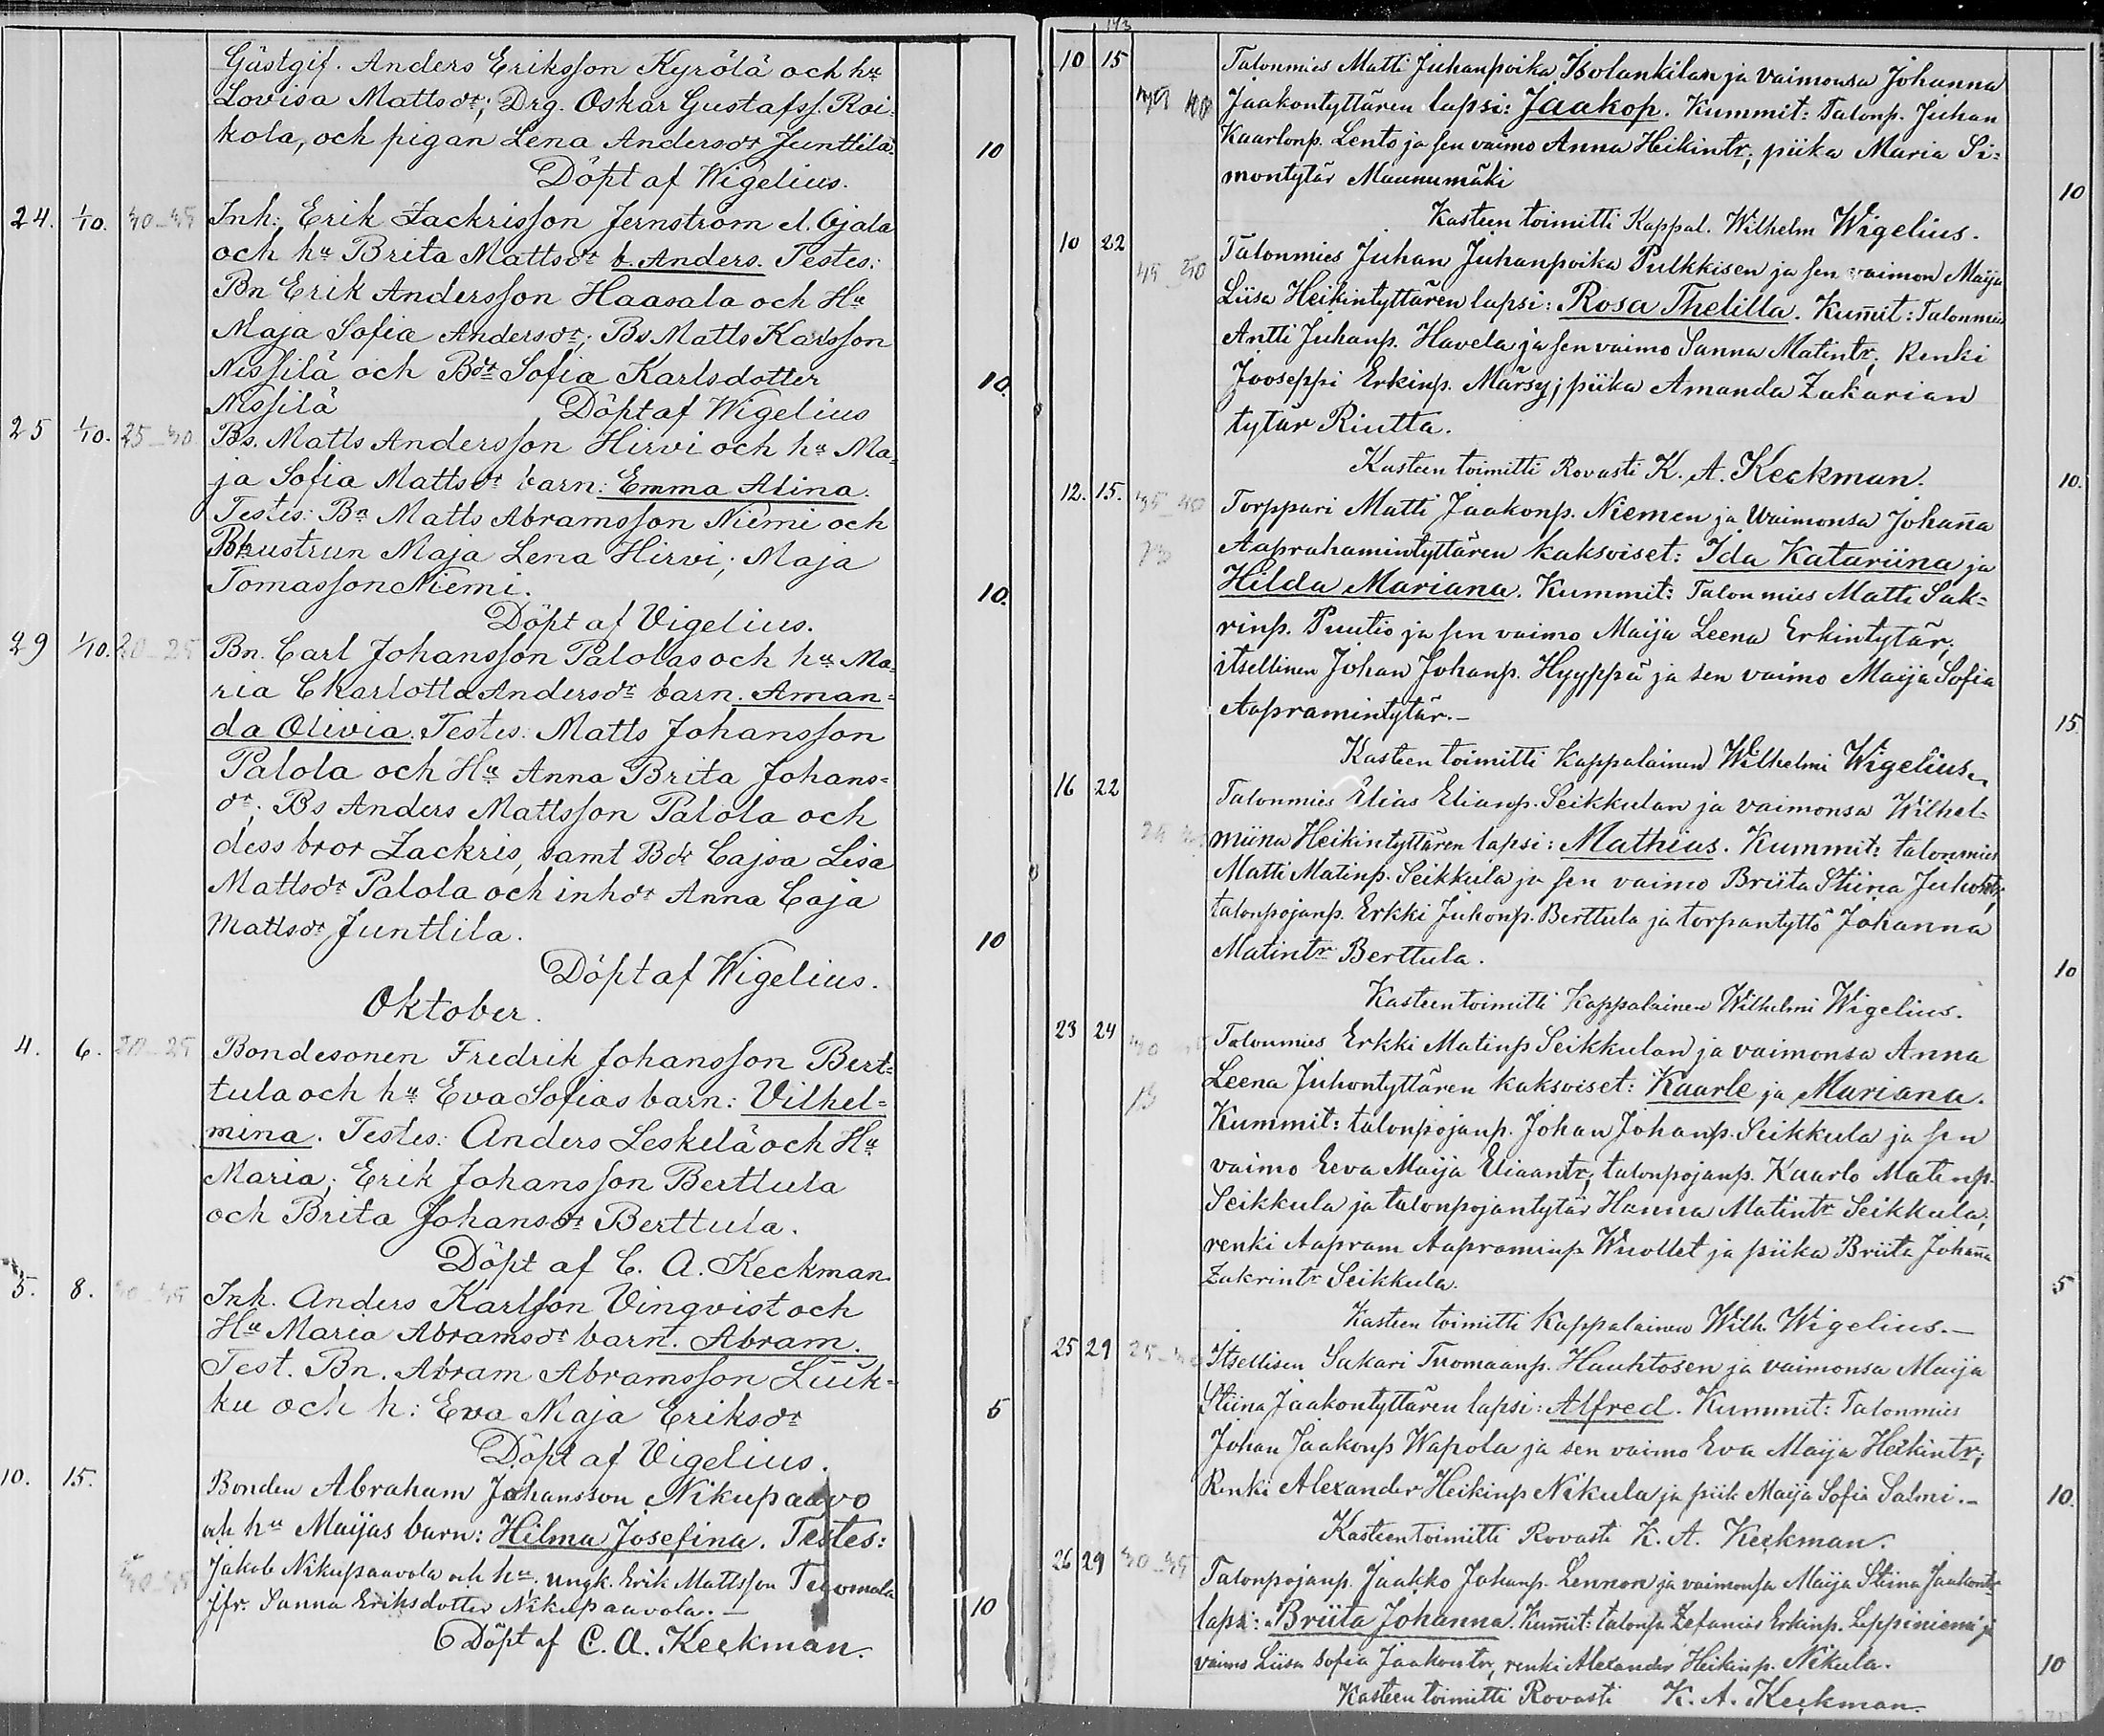 Gästgif. Anders Eriksson Kyrölä och hu
Lovisa Mattsdr; Drg. Oskar Gustafss. Rai-
kola, och pigan Lena Andersdr Junttila. 10
Döpt af Wigelius.
24. 1/10. 30-35 Inh: Erik Zackrisson Jernström el. Ojala
och hu Brita Mattsdr b. Anders. Testes:
Bn Erik Andersson Haasala och Hu
Maja Sofia Andersdr; Bs Matts Karlsson
Nissilä och Bdr Sofia Karlsdotter 10.
Nissilä Döpt af Wigelius
25 1/10. 25-30 Bs. Matts Andersson Hirvi och hu Ma-
ja Sofia Mattsdr barn: Emma Alina.
Testes: Bn Matts Abramsson Niemi och
Bhustrun Maja Lena Hirvi; Maja
Tomasson Niemi. 10.
Döpt af Vigelius.
29 1/10. 20-25 Bn. Carl Johansson Palolas och hu Ma-
ria Charlotta Andersdr barn. Aman-
da Olivia. Testes: Matts Johansson
Palola och Hu Anna Brita Johans-
dr; Bs Anders Mattsson Palola och
dess bror Zackris, samt Bdr Cajsa Lisa
Mattsdr Palola och inhdr Anna Caja
Mattsdr Junttila. 10
Döpt af Wigelius.
Oktober.
4. 6. 20-25 Bondesonen Fredrik Johansson Bert-
tula och hu Eva Sofias barn: Vilhel-
mina. Testes: Anders Leskelä och Hu
Maria; Erik Johansson Berttula
och Brita Johansdr Berttula.
Döpt af C. A. Keckman.
5. 8. 30-35 Inh. Anders Karlsson Vinqvist och
Hu Maria Abramsdr barn. Abram.
Test. Bn. Abram Abramsson Luuk-
ku och h: Eva Maja Eriksdr 5
Döpt af Vigelius.
10. 15. Bonden Abraham Johansson Nikupaavo
och hu Maijas barn: Hilma Josefina. Testes:
30-35 Jakob Nikupaavola och hu. ungk. Erik Mattsson Tuomala
Jfr. Sanna Eriksdotter Nikupaavola.— 10
Döpt af C. A. Keckman.
143
10 15 Talonmies Matti Juhanpoika Isolankilan ja vaimonsa Johanna
Jaakontyttären lapsi: Jaakop. Kummit: Talonp. Juhan
Kaarlonp. Lento ja sen vaimo Anna Heikintr, piika Maria Si-
montytär Maunumäki 10
Kasteen toimitti Kappal. Wilhelm Wigelius.
10 22 Talonmies Juhan Juhanpoika Pulkkisen ja sen vaimon Maija
Liisa Heikintyttären lapsi: Rosa Thelilla. Kum̄it: Talonmies
Antti Juhanp. Havela ja sen vaimo Sanna Matintr; Renki
Jooseppi Erkinp. Märsy; piika Amanda Zakarian
tytär Riutta.
Kasteen toimitti Rovasti K. A. Keckman. 10.
12. 15. 35-40 Torppari Matti Jaakonp. Niemen ja Waimonsa Johan̄a
Aaprahamintyttären kaksoiset: Ida Katariina ja
Hilda Mariana. Kummit: Talonmies Matti Sak-
rinp. Puutio ja sen vaimo Maija Leena Erkintytär,
itsellinen Johan Johanp. Hyyppä ja sen vaimo Maija Sofia
Aapramintytär.— 15.
Kasteen toimitti Kappalainen Wilhelmi Wigelius.
16 22 Talonmies Elias Elianp. Seikkulan ja vaimonsa Wilhel-
miina Heikintyttären lapsi: Mathias. Kummit: talonmies
Matti Matinp. Seikkula ja sen vaimo Briita Stiina Juhontr,
talonpojanp. Erkki Juhonp. Berttula ja torpantyttö Johanna
Matintr Berttula. 10
Kasteen toimitti Kappalainen Wilhelmi Wigelius.
23 24 Talonmies Erkki Matinp Seikkulan ja vaimonsa Anna
Leena Juhontyttären kaksoiset: Kaarle ja Mariana.
Kummit: talonpojanp. Johan Johanp. Seikkula ja sen
vaimo Eeva Maija Eliaantr, talonpojanp. Kaarlo Matinp.
Seikkula ja talonpojantytär Hanna Matintr Seikkula,
renki Aapram Aapraminp Wuollet ja piika Briita Johan̄a
Zakrintr Seikkula. 5
Kasteen toimitti Kappalainen Wilh. Wigelius.—
25 29 Itsellisen Sakari Tuomaanp. Hauhtosen ja vaimonsa Maija
Stiina Jaakontyttären lapsi: Alfred. Kummit: Talonmies
Johan Jaakonp Wapola ja sen vaimo Eva Maija Heikintr;
Renki Alexander Heikinp Nikula ja piik. Maija Sofia Salmi.— 10.
Kasteen toimitti Rovasti K. A. Keckman.
26 29 30-35 Talonpojanp. Jaakko Johanp. Lennon ja vaimonsa Maija Stiina Jaakontr
lapsi: Briita Johanna. Kum̄it: talonp. Zefanias Erkinp. Leppiniemi ja
vaimo Liisa Sofia Jaakontr, renki Alexander Heikinp. Nikula. 10
Kasteen toimitti Rovasti K. A. Keckman.